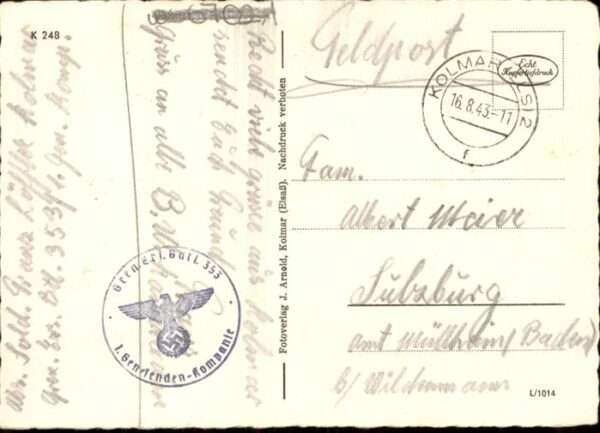 K 248
Recht viele Grüße aus Kolmar
sendet Euch
Gruss an alle
Abs. Sold. Franz Kolmar
Gren. Ers. Btl. 353 1. Gen. Komp.
Gren. Ers. Batl. 353
1. Genesenden-Kompanie
Fotoverlag J. Arnold, Kolmar (Elsaß). Nachdruck verboten
Feldpost
KOLMAR (ELS) 2
16.8.43.-11
f
Echt
Kupfertiefdruck
Fam.
Albert Maier
Sulzburg
amt Müllheim/Baden
b/ Wildenmann
L/1014